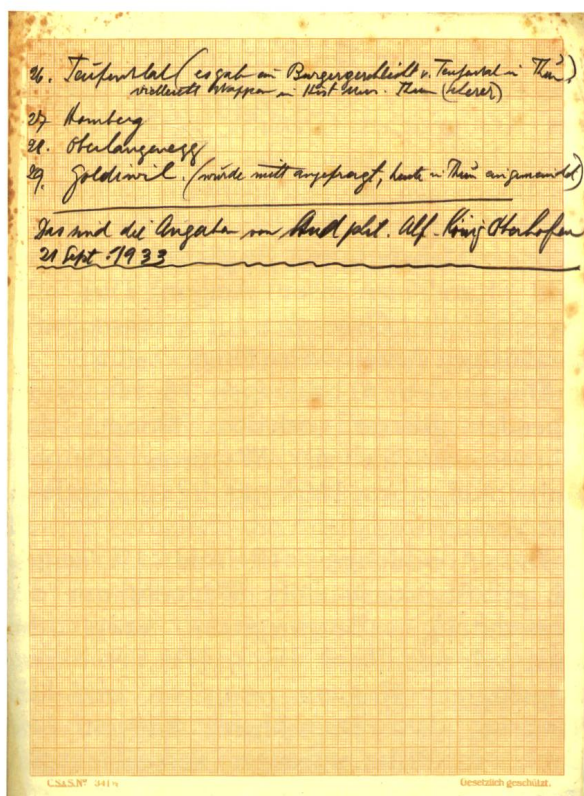 26. Teufental (es gab ein Burgergeschlecht v. Teufental in Thun.)
vielleicht Wappen in Hist Mus. Thun (
27 Homberg
28. Oberlangenegg
29. Goldiwil. (wurde nitt angefragt, heute in Thun eingemeindet)
Das sind die Angaben von stud phil. Alf. König Oberhofen
21 Sept. 1933
C.S&S.Nº 341
Gesetzlich geschützt.